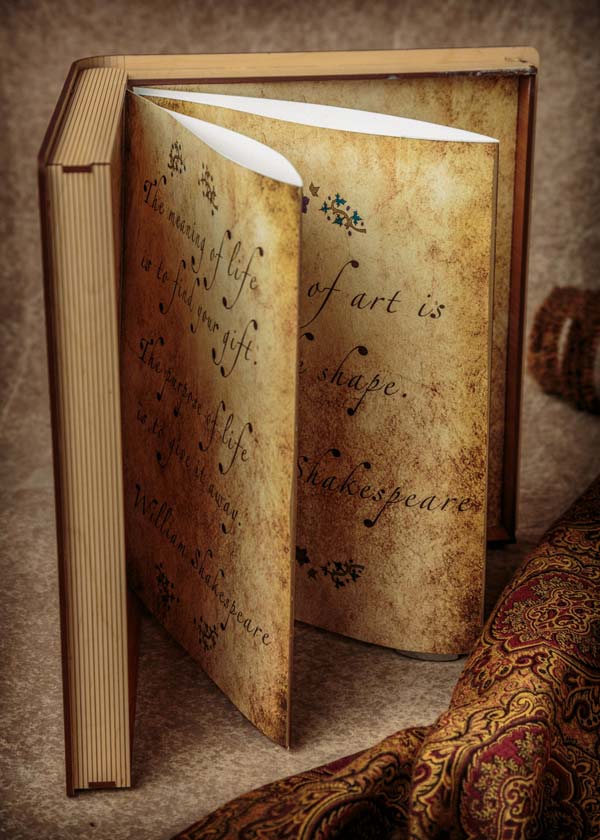 The meaning of life
is to find your gift.
The purpose of life
is to give it away.
William Shakespeare
of art is
shape.
Shakespeare